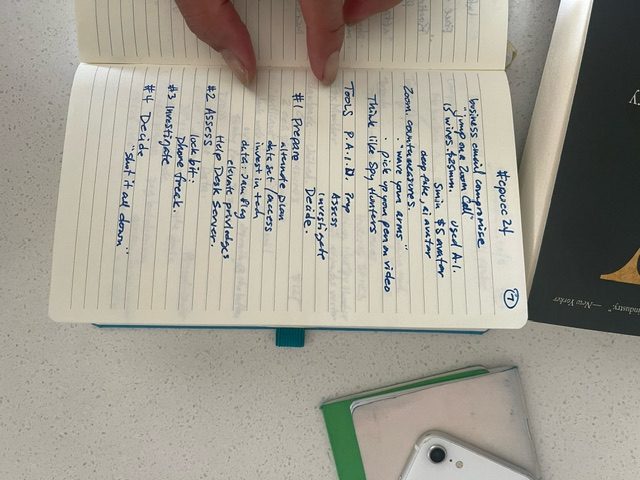 #cpucc 24
7
business email compromise
"jump on a Zoom Call" used A.I.
15 wires. $25mm.
5min $5 avatar
deep fake, ai avatar
Zoom. countermeasures.
"wave your arms"
• pick up your pen on video
Think like Spy Hunters
Tools P.A.I.D. Prep
Assess
Investigate
Decide.
#1 Prepare
alternate plan
data set / access
invest in tech
data. Jam Bag
#2 Assess
elevate priviledges
Help Desk Server.
lock bit:
#3 Investigate
phone freak.
#4 Decide
"shut it all down"
industry." —New Yorker